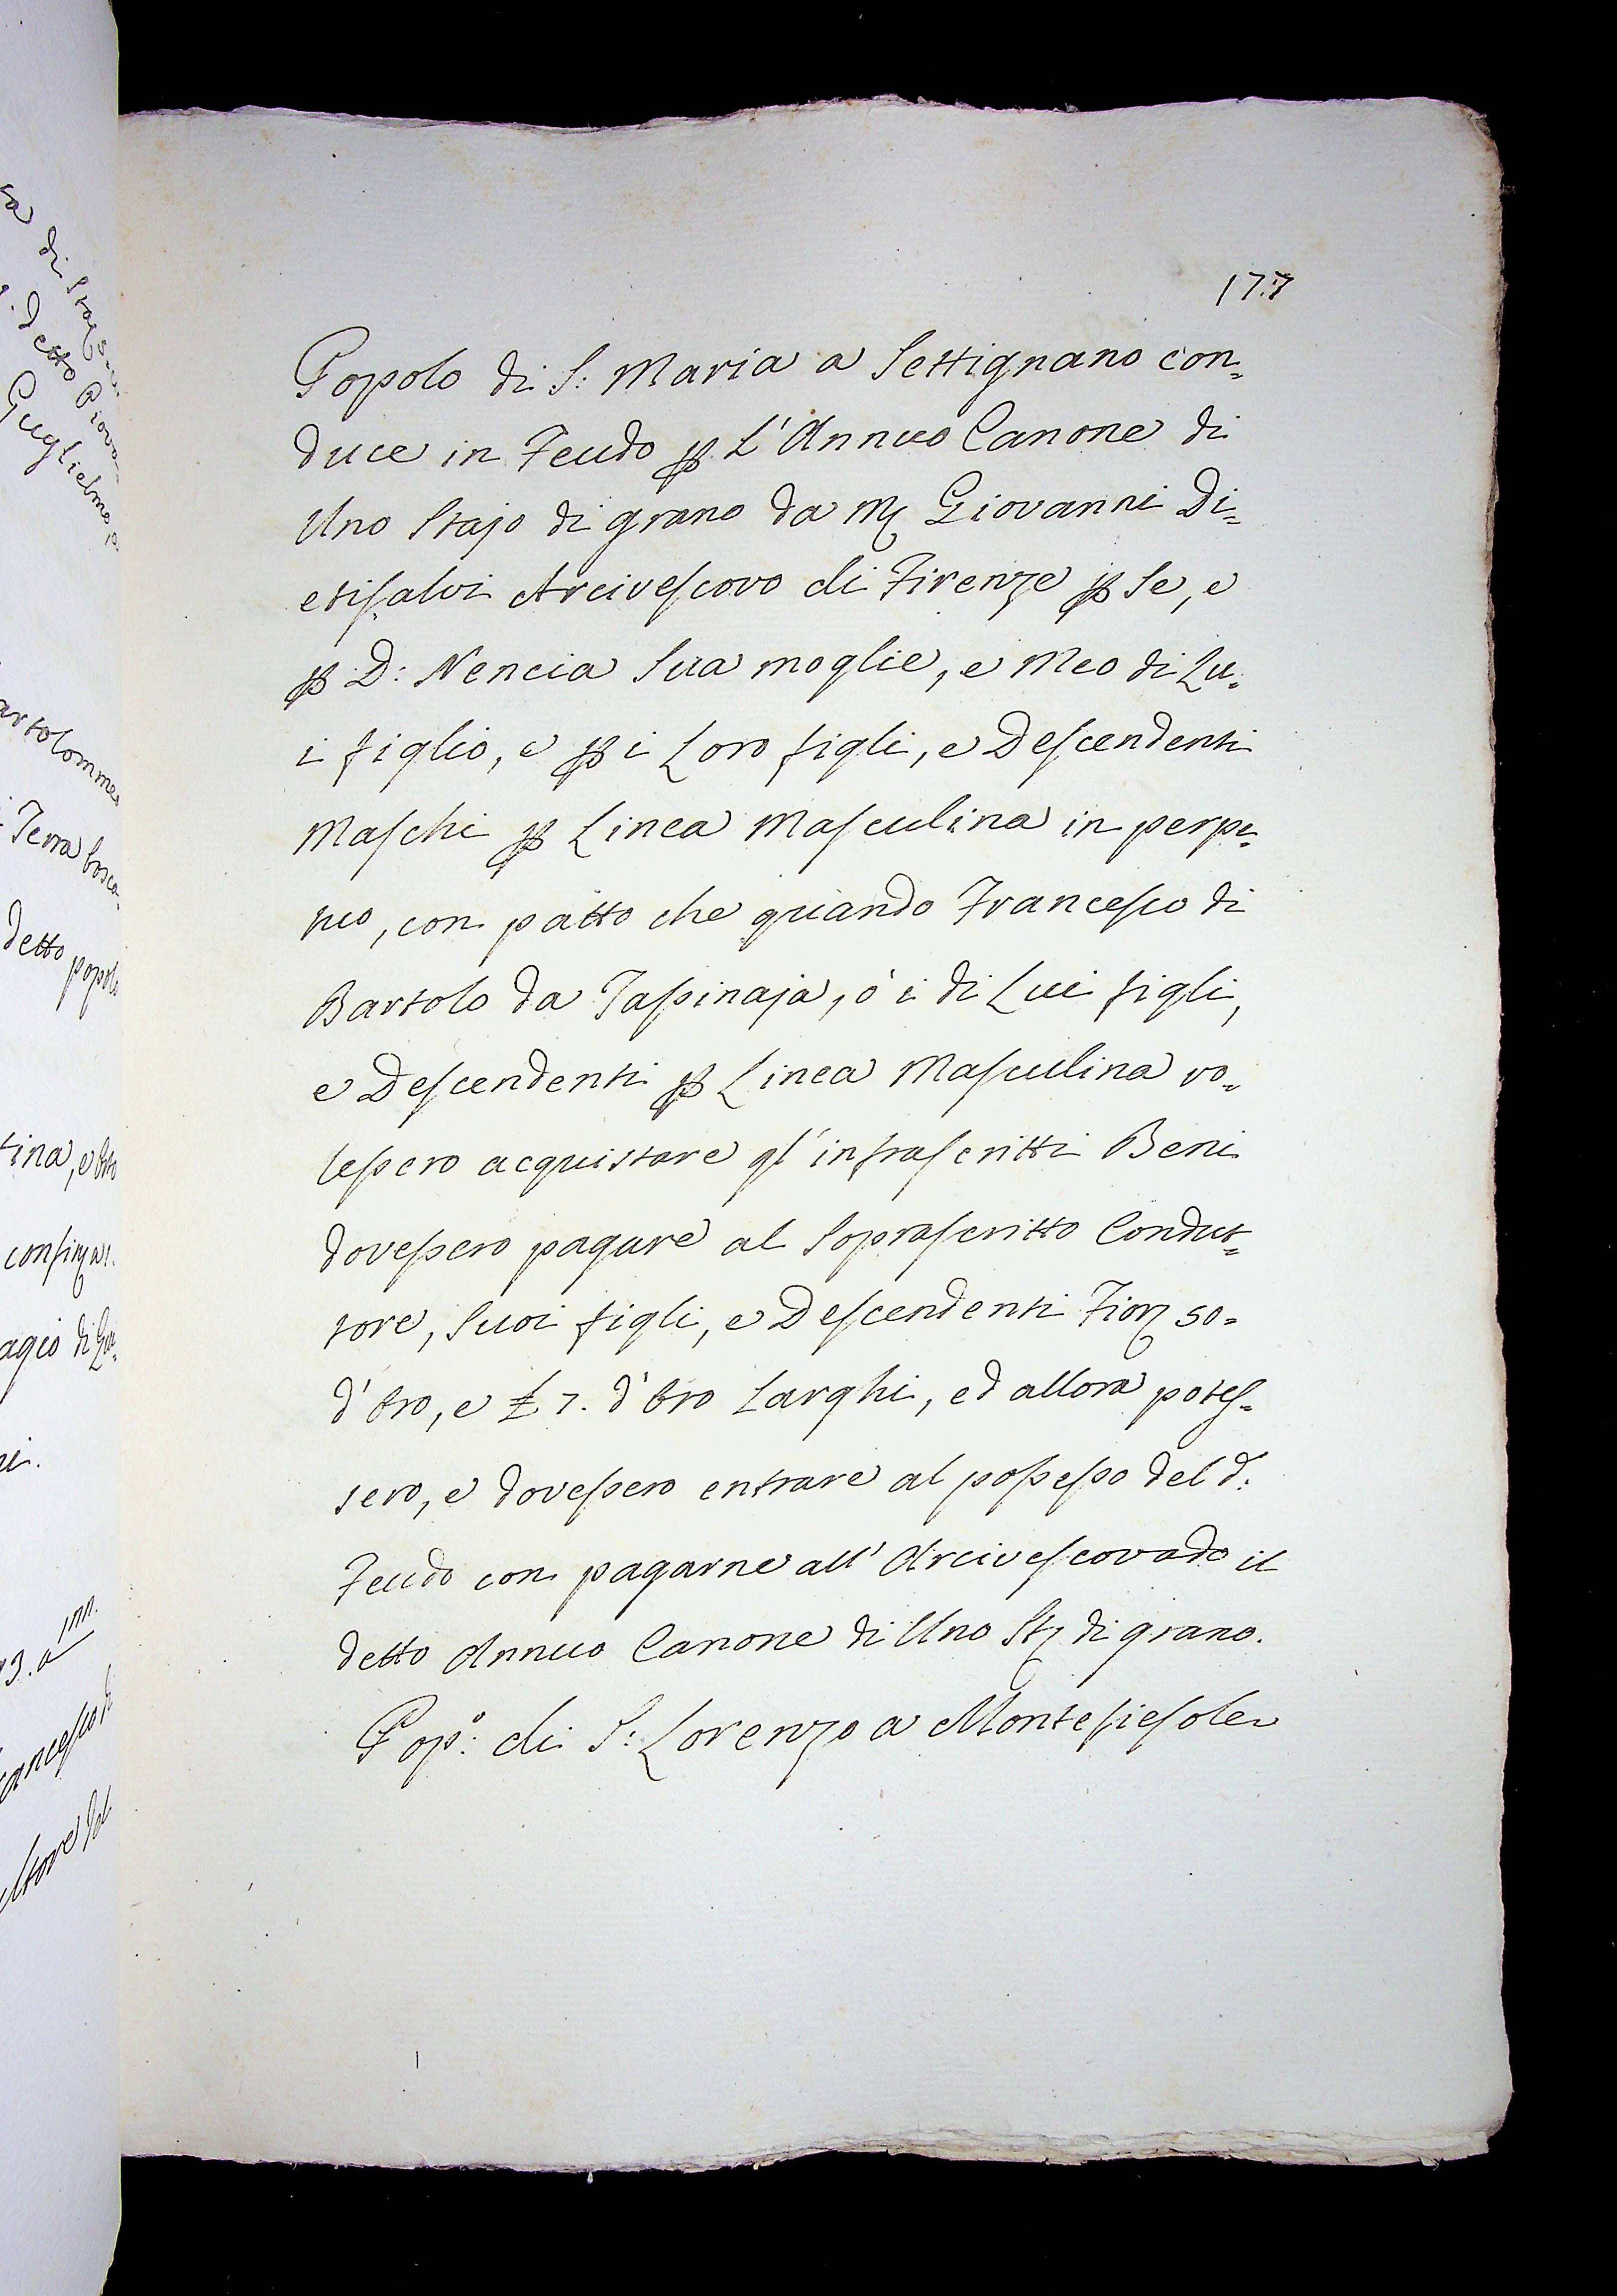 177
Popolo di S: Maria a Settignano con=
duce in Feudo ꝑ L'Annuo Canone di
Uno Stajo di grano da M Giovanni Di=
etisalvi Arcivescovo di Firenze ꝑ Se, e
ꝑ D: Nencia Sua moglie, e Meo di Lu=
i figlio, e ꝑ i Loro figli, e Descendenti
Maschi ꝑ Linea Masculina in perpe=
tuo, con patto che quando Francesco di
Bartolo da Taſsinaja, ò i di Lui figli,
e Descendenti ꝑ Linea Masculina vo=
leſsero acquistare gl'infrascritti Beni
doveſsero pagare al Soprascritto Condut=
tore, Suoi figli, e Descendenti Fior 50=
d'Oro, e £ 7. d'Oro Larghi, ed allora potes=
sero, e doveſsero entrare al poſseſso del d:
Feudo con pagarne all'Arcivescovado il
detto Annuo Canone di Uno St di grano.
Pop:º di S: Lorenzo a Montefiesole
detto Piova
Guglielmo
artolomme
Terra bosca
detto popolo
tina, e
agio di
ni.